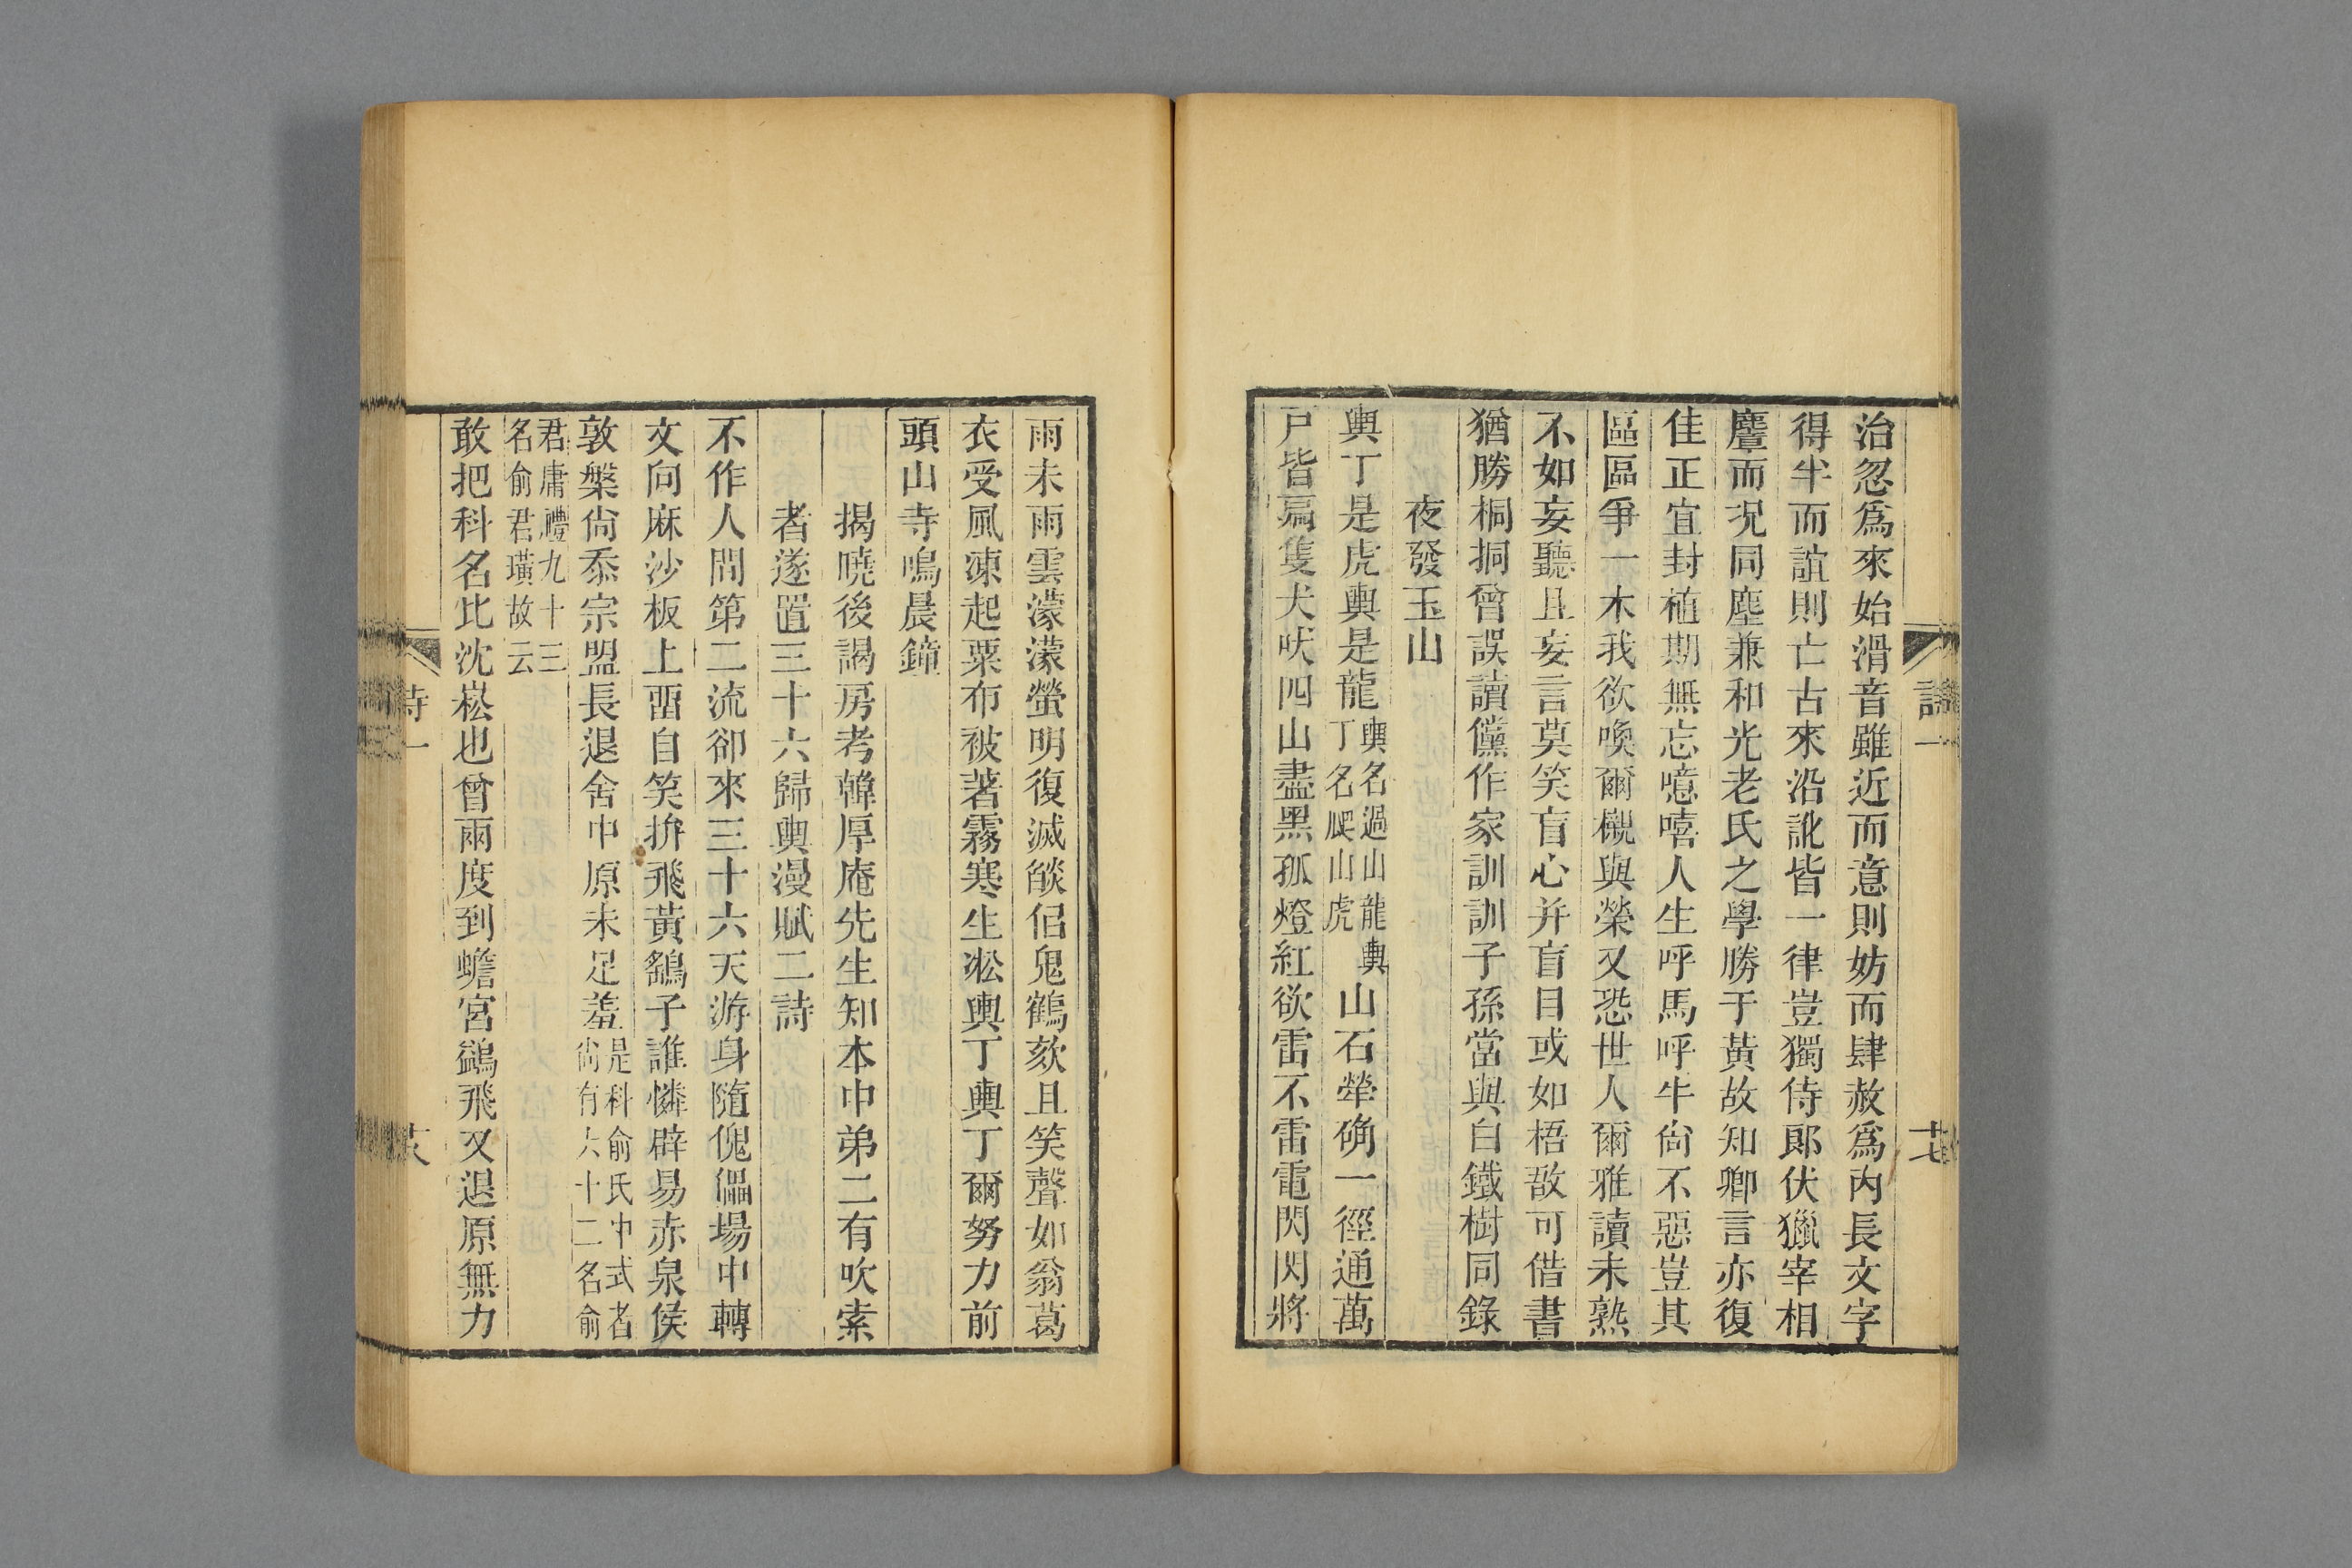 治忽爲來始滑音雖近而意則妨而肆赦爲內長文字
得半而誼則亡古來沿訛皆一律豈獨侍郎伏獵宰相
麞而況同塵兼和光老氏之學勝于黃故知卿言亦復
佳正宜封植期無忘噫嘻人生呼馬呼牛尙不惡豈其
區區爭一木我欲喚爾櫬與榮又恐世人爾雅讀未熟
不如妄聽且妄言莫笑盲心并盲目或如梧敔可借書
猶勝桐挏曾誤讀儻作家訓訓子孫當與白鐵樹同錄
夜發玉山
輿丁是虎輿是龍輿名過山龍輿丁名爬山虎山石犖确一徑通萬
戸皆扃隻犬吠四山盡黑孤燈紅欲雷不雷電閃閃將
雨未雨雲濛濛螢明復滅燄佀鬼鶴欬且笑聲如翁葛
衣受風凍起粟布被著霧寒生凇輿丁輿丁爾努力前
頭山寺鳴晨鐘
揭曉後謁房考韓厚庵先生知本中弟二有吹索
者遂置三十六歸輿漫賦二詩
不作人間第二流卻來三十六天游身隨傀儡場中轉
文向麻沙板上畱自笑拚飛黃鵠子誰憐辟易赤泉侯
敦槃尙忝宗盟長退舍中原未足羞是科俞氏中式者尙有六十二名俞
君庸禮九十三名俞君璜故云
敢把科名比沈崧也曾兩度到蟾宮鷁飛又退原無力
詩一
十七
詩一